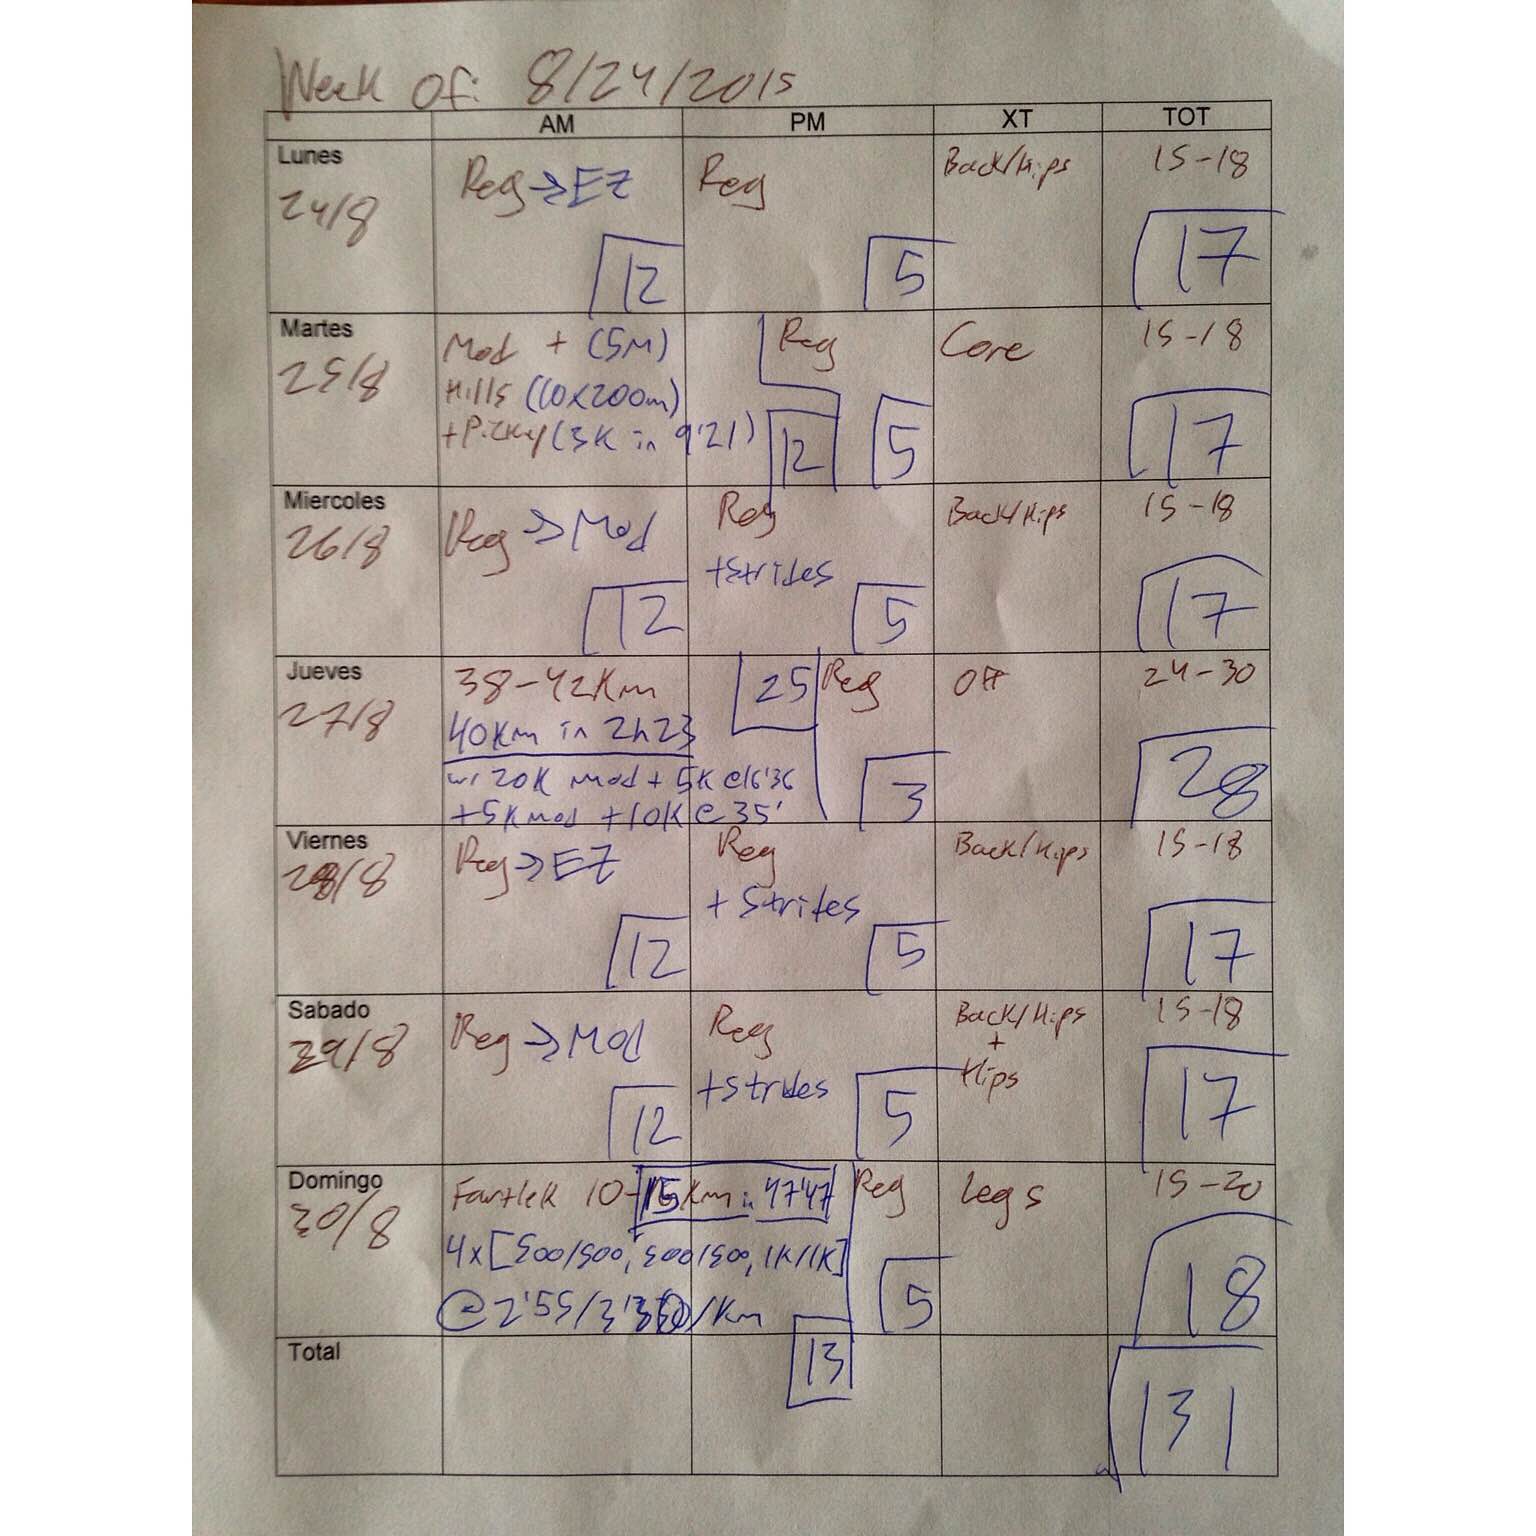 Week of: 8/24/2015
AM PM XT TOT
Lunes 24/8
Reg → EZ
12
Reg
5
Back/Hips
15-18
17
Martes 25/8
Mod + (5M)
Hills (10x200m)
(3K in 9'21)
12
Reg
5
Core
15-18
17
Miercoles 26/8
Reg → Mod
12
Reg
+strides
5
Back/Hips
15-18
17
Jueves 27/8
38-42Km
40Km in 2h23
w/ 20K mod + 5K @16'36
+5Kmod +10K @ 35'
25
Reg
3
Off
24-30
28
Viernes 28/8
Reg → EZ
12
Reg
+ Strides
5
Back/Hips
15-18
17
Sabado 29/8
Reg → Mod
12
Reg
+Strides
5
Back/Hips
+
Hips
15-18
17
Domingo 30/8
Fartlek 10-15Km in 47'47
4x[500/500, 500/500, 1K/1K]
@ 2'55/ /Km
13
Reg
5
Legs
15-20
18
Total
131